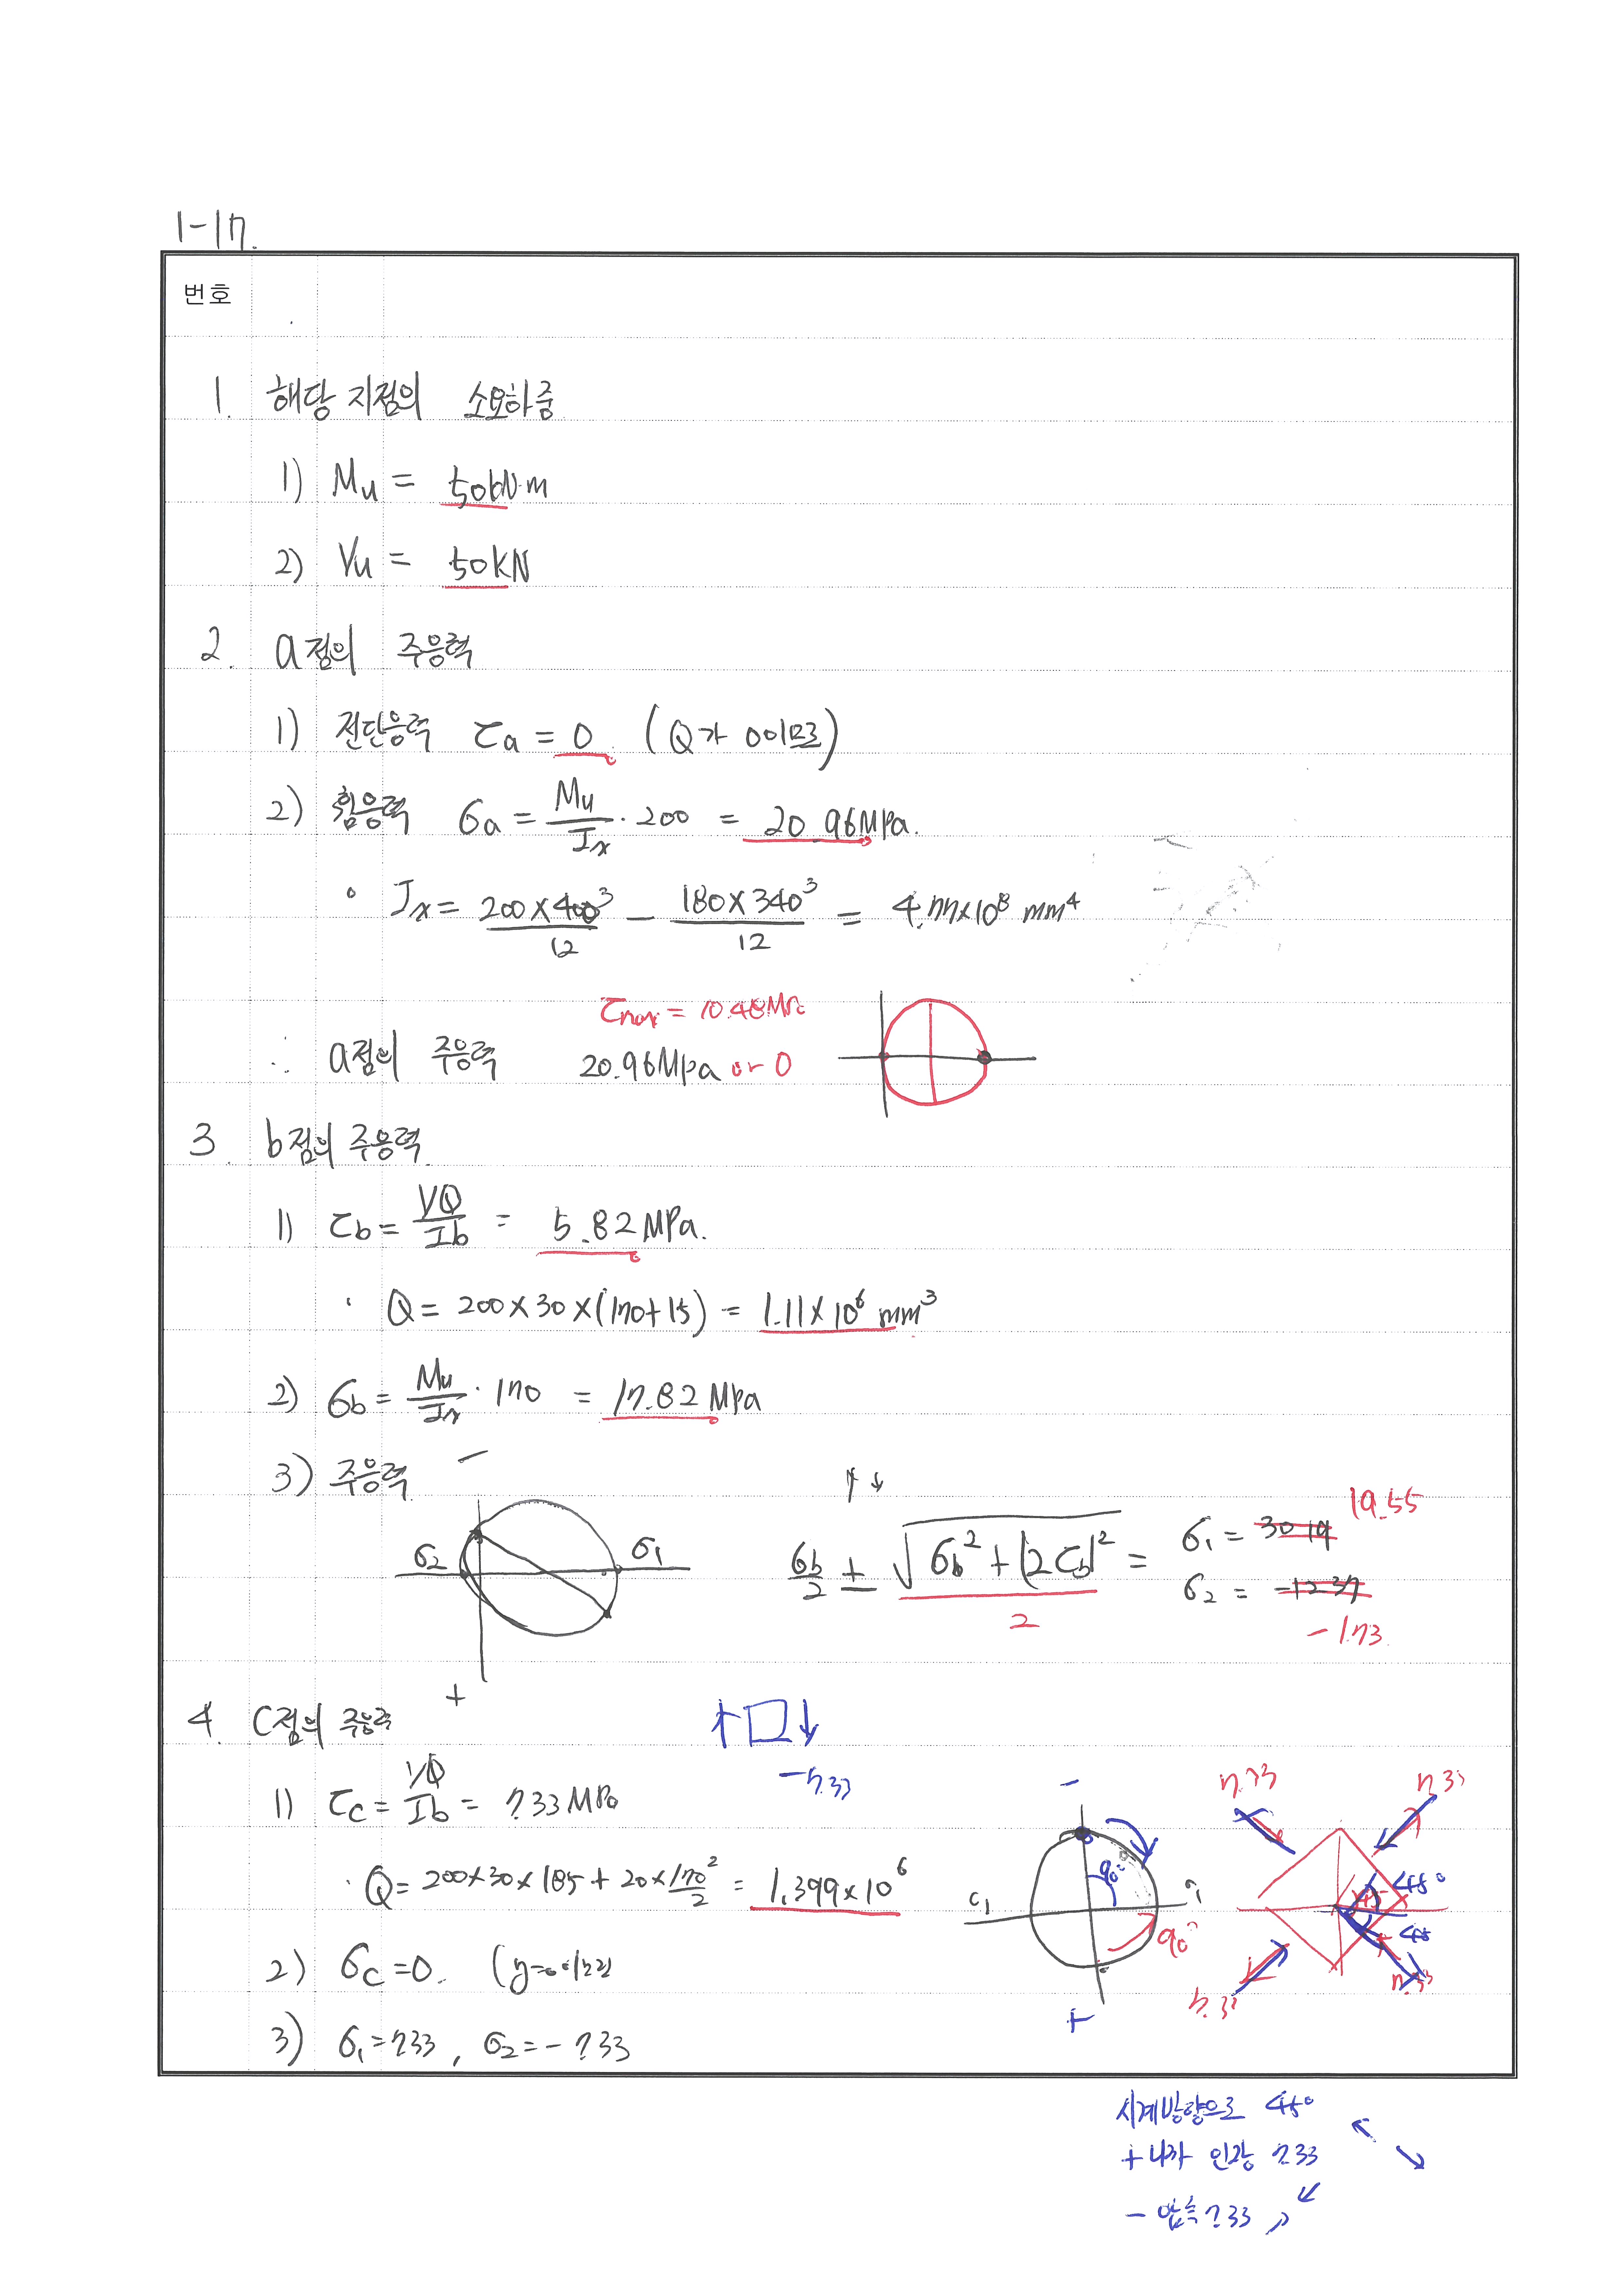 1-17.
번호
1. 해당 지점의 소요하중
1) Mu = 50kN·m
2) Vu = 50kN
2. a점의 주응력
1) 전단응력 τa = 0 (Q가 0이므로)
2) 휨응력 σa = Mu/Ix · 200 = 20.96MPa.
• Ix = 200×400³/12 - 180×340³/12 = 4.77×10⁸ mm⁴
τmax = 10.48MPa
∴ a점의 주응력 20.96Mpa or 0
3. b점의 주응력
1) τb = VQ/Ib = 5.82MPa.
· Q = 200×30×(170+15) = 1.11×10⁶ mm³
2) σb = Mu/Ix · 170 = 17.82MPa
3) 주응력 -
↑ ↓
19.55
σ2 σ1 σb/2 ± √(σb² + (2τb)²)/2 = σ1 = 30.19
σ2 = -12.37
-1.73
+
4. C점의 주응력 ↑□↓
1) τc = VQ/Ib = 7.33MPa
-7.33
- 7.33 7.33
· Q = 200×30×185 + 20×170²/2 = 1.399×10⁶
90° σ1 90° 45° 45
2) σc = 0. (y=0이므로
+ 7.33 7.33
3) σ1 = 7.33, σ2 = -7.33
시계방향으로 45°
+니까 인장 7.33
- 압축 7.33